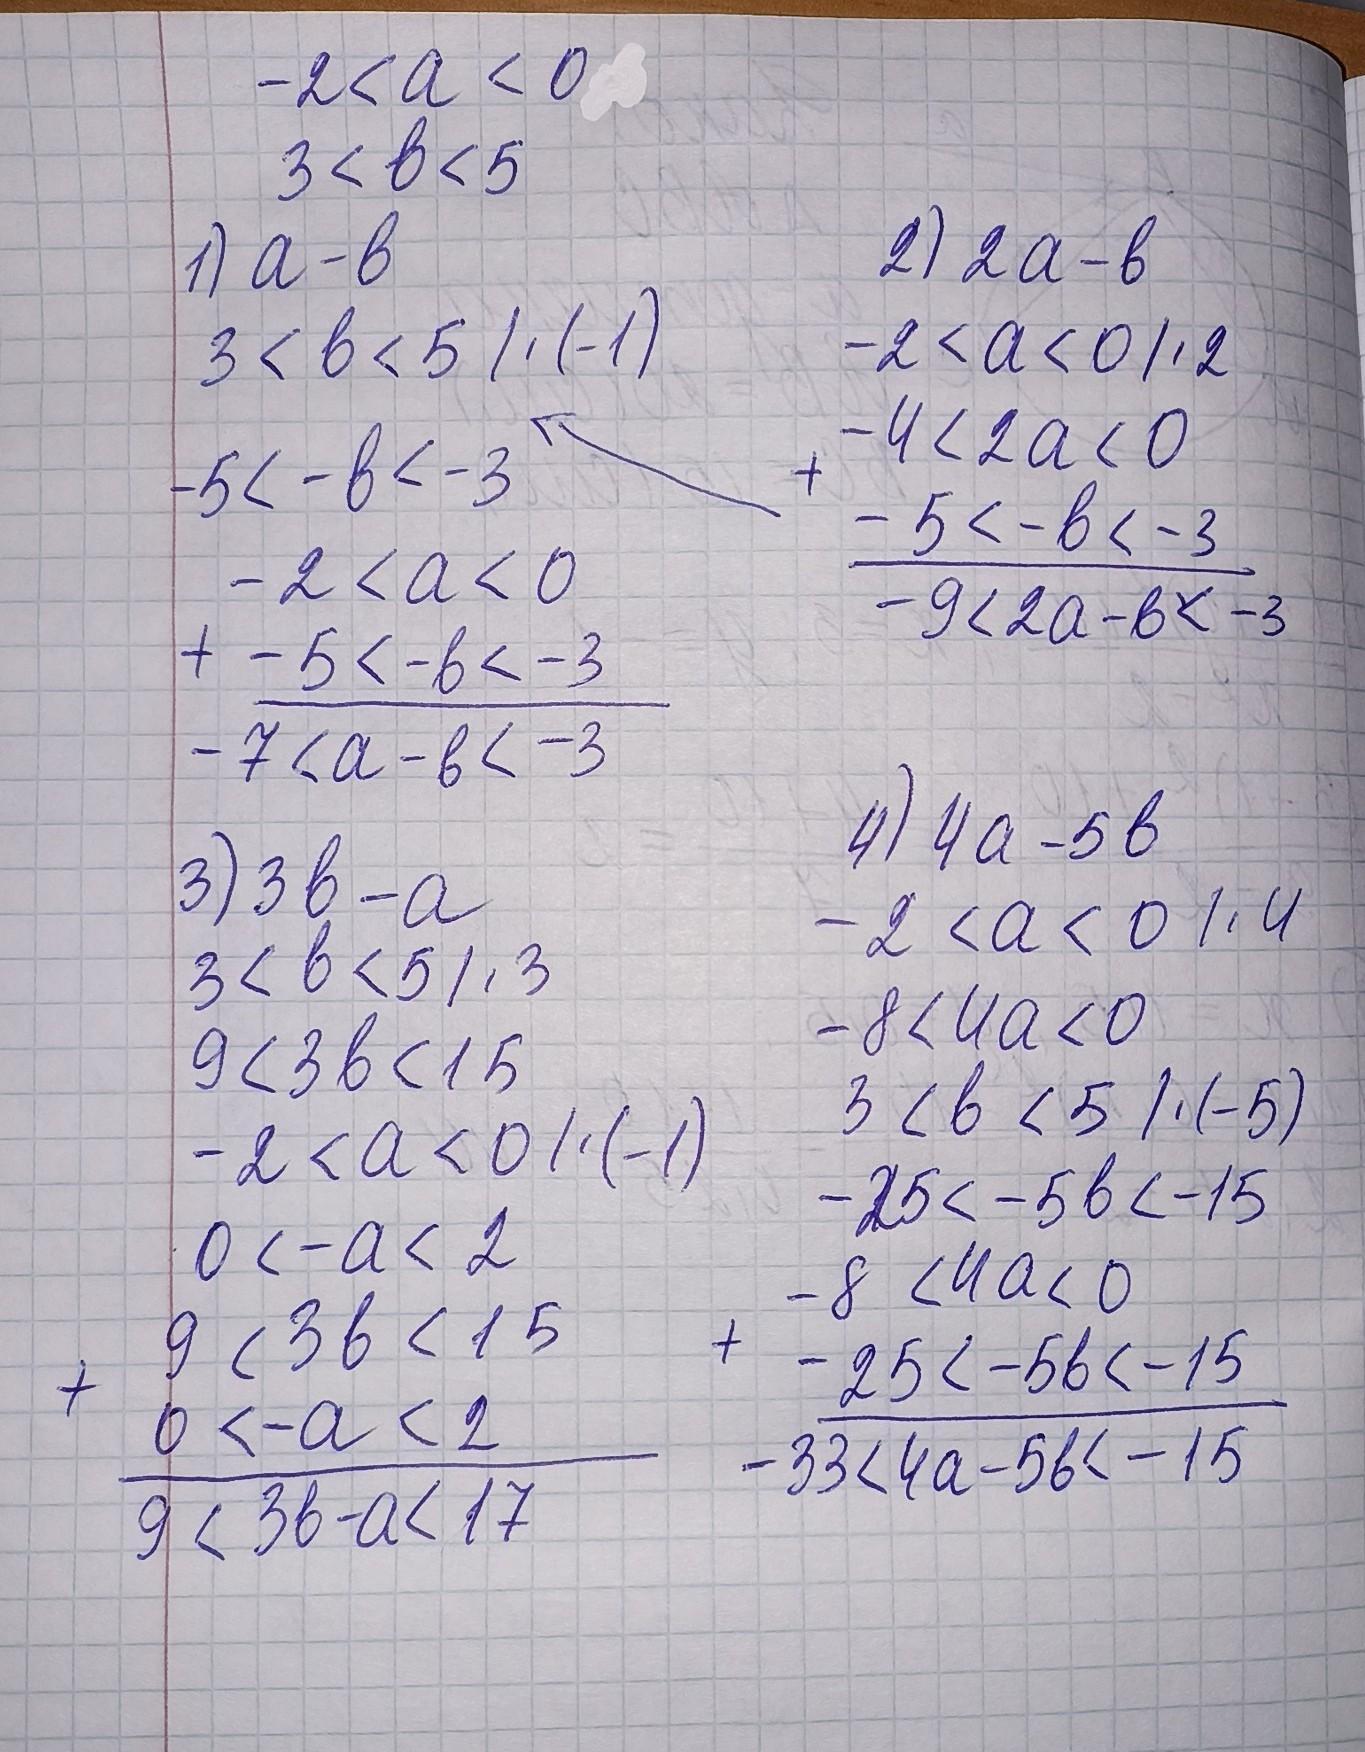 -2 < a < 0
3 < b < 5
1) a - b
3 < b < 5 |·(-1)
-5 < -b < -3
-2 < a < 0
+ -5 < -b < -3
-7 < a - b < -3
2) 2a - b
-2 < a < 0 |·2
-4 < 2a < 0
+
-5 < -b < -3
-9 < 2a - b < -3
3) 3b - a
3 < b < 5 |·3
9 < 3b < 15
-2 < a < 0 |·(-1)
0 < -a < 2
9 < 3b < 15
+
0 < -a < 2
9 < 3b - a < 17
4) 4a - 5b
-2 < a < 0 |·4
-8 < 4a < 0
3 < b < 5 |·(-5)
-25 < -5b < -15
-8 < 4a < 0
+
-25 < -5b < -15
-33 < 4a - 5b < -15